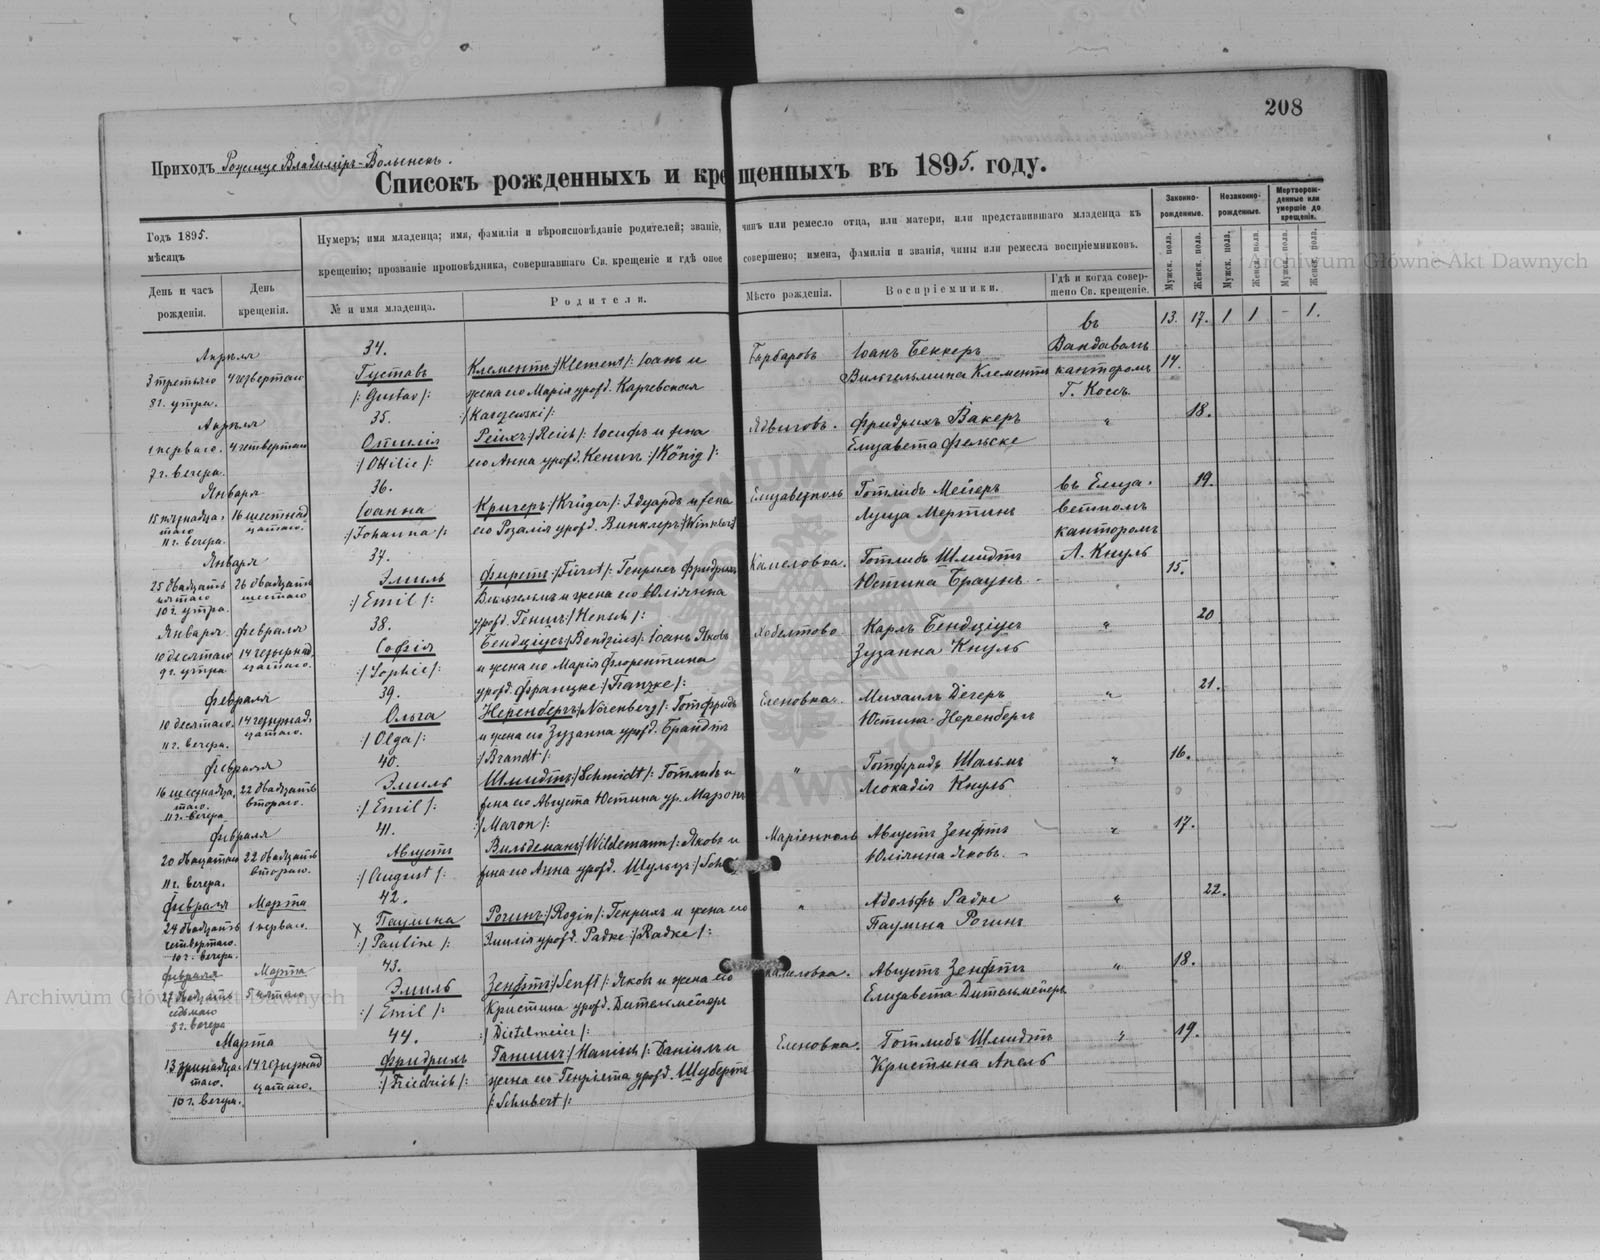 208
Приходъ Рожище Владиміръ-Волынскъ.
Списокъ рожденныхъ и крещенныхъ въ 1895. году.
Годъ 1895.
мѣсяцъ
День и часъ рожденія.
День крещенія.
Нумеръ; имя младенца; имя, фамилія и вѣроисповѣданіе родителей; званіе, чинъ или ремесло отца, или матери, или представившаго младенца къ
крещенію; прозваніе проповѣдника, совершавшаго Св. крещеніе и гдѣ оное совершено; имена, фамиліи и званія, чины или ремесла воспріемниковъ.
№ и имя младенца.
Родители.
Мѣсто рожденія.
Воспріемники.
Гдѣ и когда совершено Св. крещеніе.
Законно-рожденные.
Незаконно-рожденные.
Мертворожденные или умершіе до крещенія.
Мужск. пола.
Женск. пола.
Мужск. пола.
Женск. пола.
Мужск. пола.
Женск. пола.
13. 17. 1 1 - 1.
Апрѣля
3 третьяго
8 г. утра.
4 четвертаго
34.
Густавъ
/: Gustav /:
Клементъ :/Klement/: Іоанъ и
жена его Марія урожд. Карчевская
:/Karczewski/:
Барбаровъ
Іоанъ Беккеръ
Вильгельмина Клементъ
въ
Вандаволь
канторомъ
Г. Коссъ.
14.
Апрѣля
1 перваго.
7 г. вечера.
4 четвертаго
35.
Отилія
:/Ottilie/:
Рейхъ :/Reich/: Іосифъ и жена
его Анна урожд. Кенигъ :/König/:
Ядвиговъ.
Фридрихъ Вакеръ
Елизавета Фельске
"
18.
Января
15 пятнадца-
таго
11 г. вечера.
16 шестнад
цатаго.
36.
Іоанна
:/Johanna/:
Кригеръ :/Krüger/: Эдуардъ и жена
его Розалія урожд. Винклеръ :/Winkler/
Елизаветполь
Готлибъ Мейеръ
Луиза Мертинъ
въ Елиза-
ветполь
канторомъ
Л. Кнуль
19.
Января
25 двадцать
пятаго
10 г. утра.
26 двадцать
шестаго
37.
Эмиль
:/Emil/:
Фирстъ :/Fürst/: Генрихъ Фридрихъ
Вильгельмъ и жена его Юліянна
урожд. Геншъ :/Hensch/:
Камеловка.
Готлибъ Шмидтъ
Юстина Браунъ
"
15.
Января
10 десятаго
9 г. утра
Февраля
14 четырнад
цатаго.
38.
Софія
:/Sophie/:
Бендціусъ :/Bendzius/: Іоанъ Яковъ
и жена его Марія Флорентина
урожд. Францке :/Franzke/:
Карлъ Бендціусъ
Зузанна Кнуль
"
20
Февраля
10 десятаго.
11 г. вечера.
14 четырнад
цатаго.
39.
Ольга
:/Olga/:
Неренбергъ :/Nörenberg/: Готфридъ
и жена его Зузанна урожд. Брандтъ
:/Brandt/:
Еленовка.
Михаилъ Дегеръ
Юстина Неренбергъ
"
21.
Февраля
16 шестнадца-
таго.
11 г. вечера
22 двадцать
втораго.
40.
Эмиль
:/Emil/:
Шмидтъ :/Schmidt/: Готлибъ и
жена его Августа Юстина ур. Маронъ
:/Maron/:
"
Готфридъ Шальмъ
Леокадія Кнуль
"
16.
Февраля
20 двацатаго
11 г. вечера.
22 двадцать
втораго.
41.
Августъ
:/August/:
Вильдеманъ :/Wildemann/: Яковъ и
жена его Анна урожд. Шульцъ
Маріенполь
Августъ Зенфтъ
Юліянна Яковъ. -
"
17.
Февраля
24 двадцать
четвертаго.
10 г. вечера.
Марта
1 перваго.
42.
x Паулина
:/Pauline/:
Рогинъ :/Rogin/: Генрихъ и жена его
Эмилія урожд. Радке :/Radke/:
"
Адольфъ Радке
Паулина Рогинъ
"
22.
Февраля
27 двадцать
седьмаго
8 г. вечера
Марта
5 пятаго.
43.
Эмиль
:/Emil/:
Зенфтъ :/Senft/: Яковъ и жена его
Кристина урожд. Дительмейеръ
:/Distelmeier/:
Камеловка.
Августъ Зенфтъ
Елизавета Дительмейеръ
"
18.
Марта
13 тринадца-
таго.
10 г. вечера.
14 четырнад
цатаго.
44.
Фридрихъ
:/Friedrich/:
Ганишъ :/Hanisch/: Даніилъ и
жена его Генріета урожд. Шубертъ
/: Schubert /:
Еленовка.
Готлибъ Шмидтъ
Кристина Апель
"
19.
Archiwum Główne Akt Dawnych
Archiwum Główne Akt Dawnych